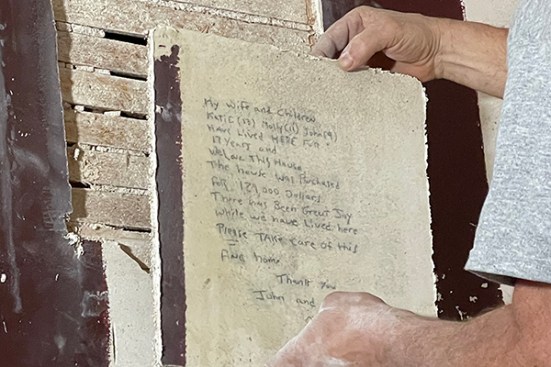 My wife and children
Katie (13) Molly (11) John (9)
Have Lived HERE For
17 YEARS and
We Love This House
The house was Purchased
for 129,000 Dollars
There has Been Great Joy
while we have Lived here
Please TAKE care of this
Fine home
Thank you
John and